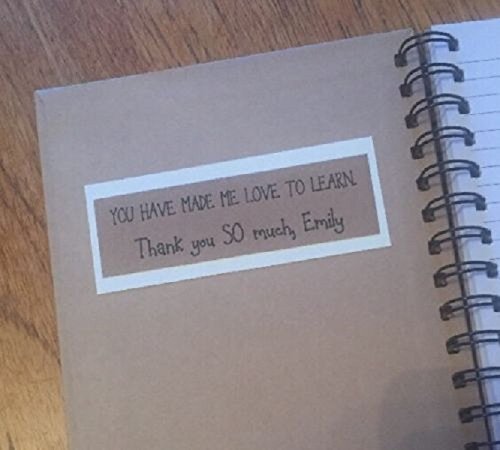 YOU HAVE MADE ME LOVE TO LEARN.
Thank you SO much, Emily